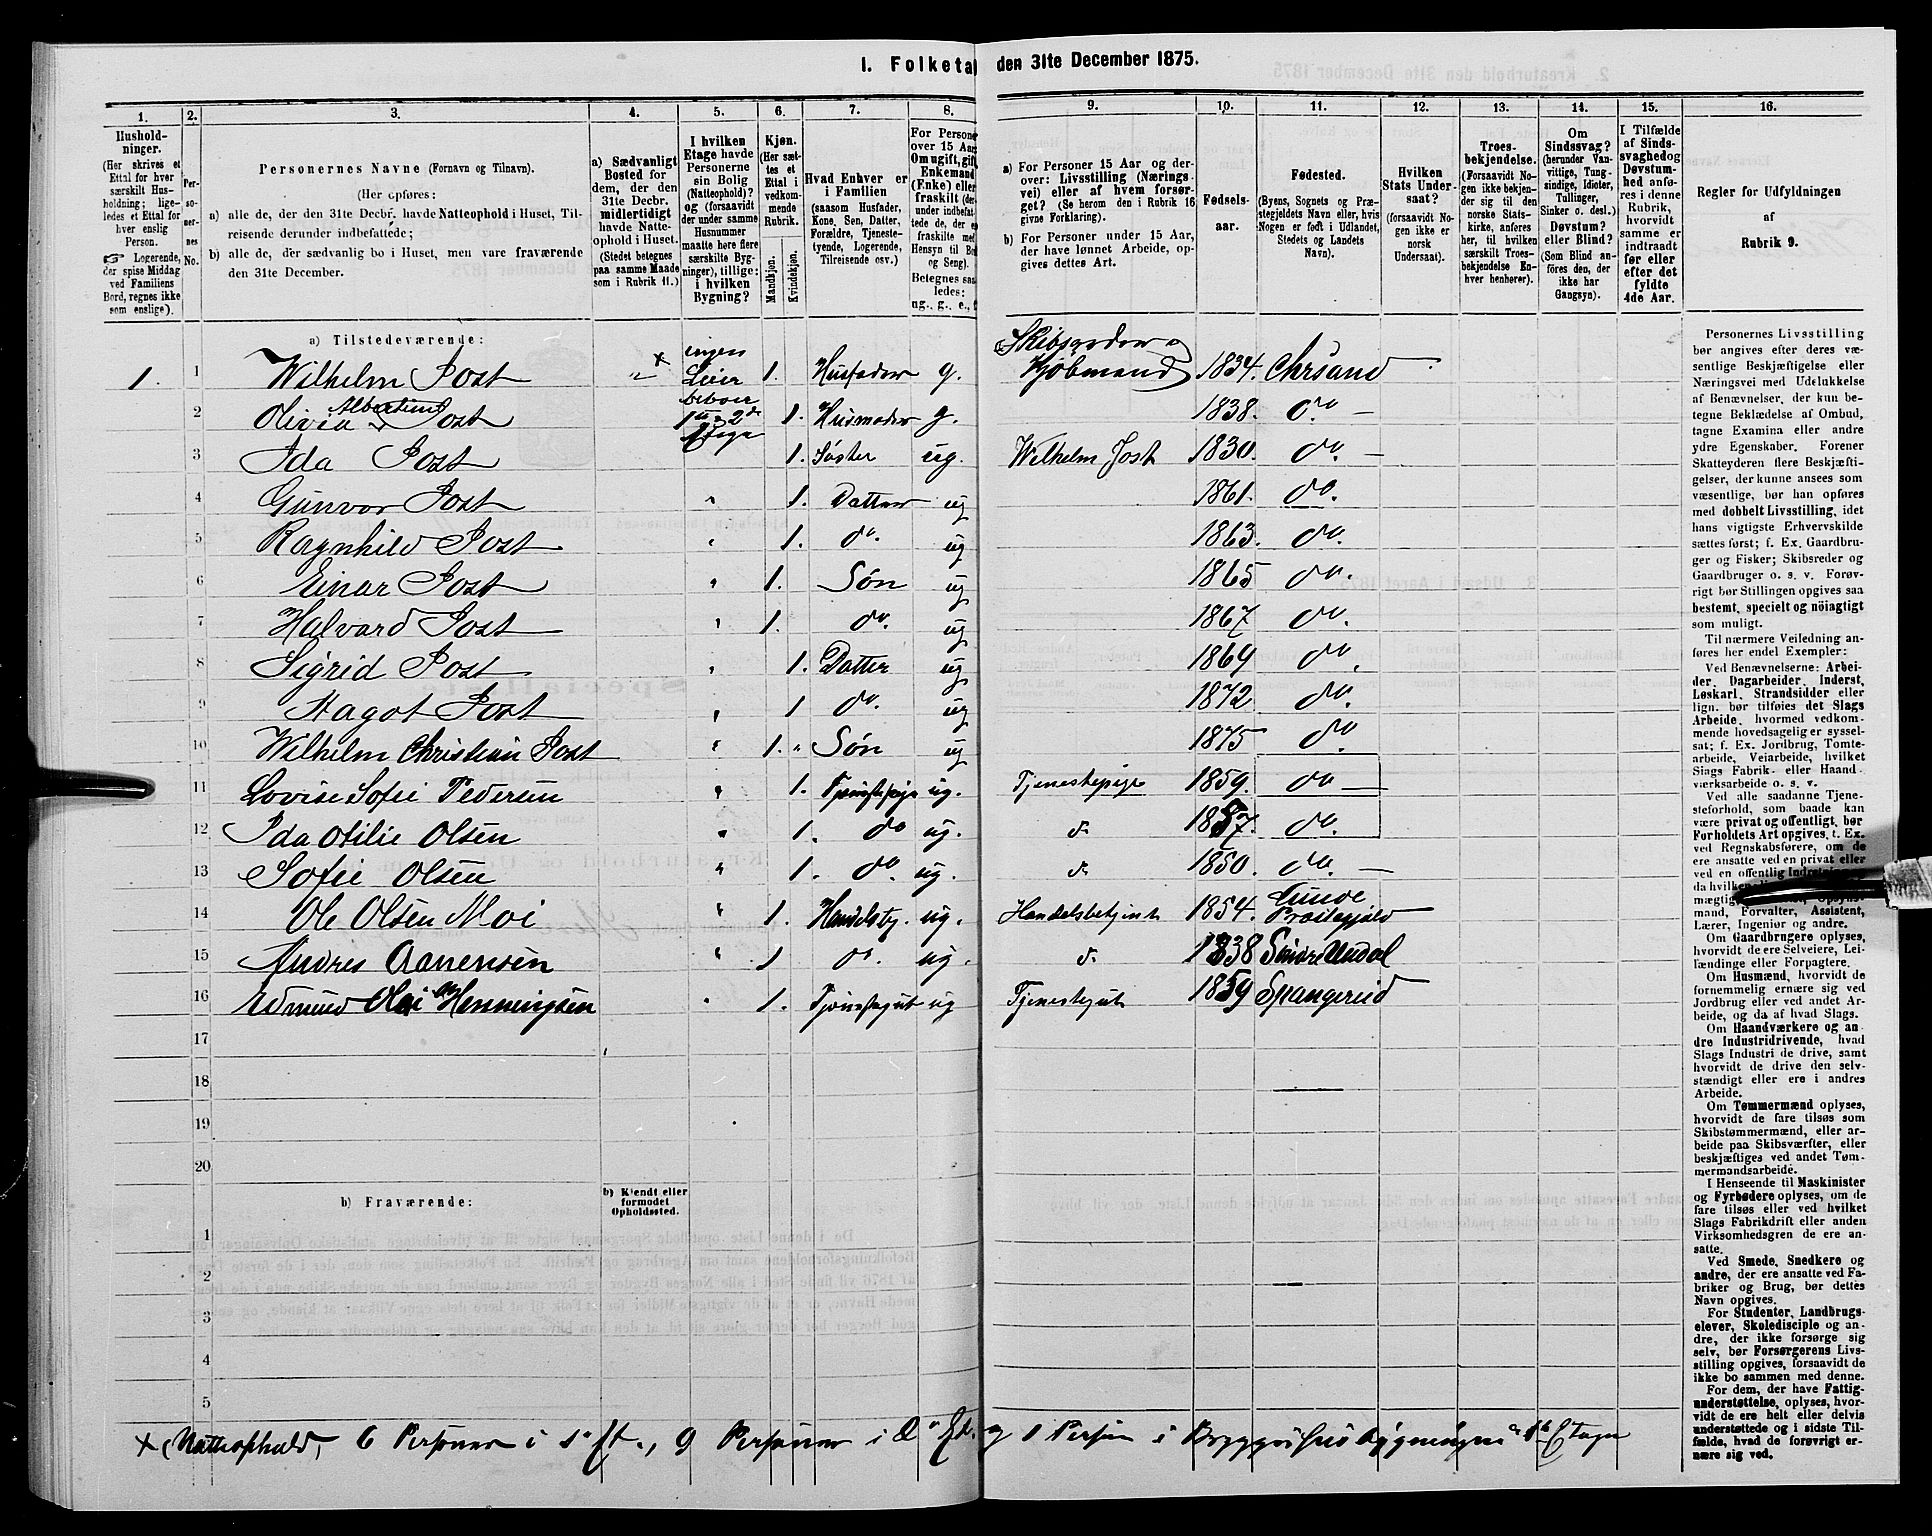 I. Folketal den 31te December 1875.
1. 2. 3. 4. 5. 6. 7. 8. 9. 10. 11. 12. 13. 14. 15. 16.
Hushold-
ninger.
(Her skrives et
Ettal for hver
særskilt Hus-
holdning; lige-
ledes et Ettal for
hver enslig
Person.
☞ Logerende,
der spise Middag
ved Familiens
Bord, regnes ikke
som enslige).
Per-
so-
ner-
nes
No.
Personernes Navne (Fornavn og Tilnavn).
(Her opføres:
a) alle de, der den 31te Decbr. havde Natteophold i Huset, Til-
reisende derunder indbefattede;
b) alle de, der sædvanlig bo i Huset, men vare fraværende
den 31te December.
a) Sædvanligt
Bosted for
dem, der den
31te Decbr.
midlertidigt
havde Natte-
ophold i Huset.
(Stedet betegnes
paa samme Maade
som i Rubrik 11.)
I hvilken
Etage havde
Personerne
sin Bolig
(Natteophold)?
og (forsaavidt
der under samme
Husnummer
maatte høre flere
særskilte Byg-
ninger), tillige:
i hvilken
Bygning?
Kjøn.
(Her sæt-
tes et
Ettal i
vedkom-
mende
Rubrik.
Mandkjøn.
Kvindekjøn.
Hvad Enhver er
i Familien
(saasom Husfader,
Kone, Søn, Datter,
Forældre, Tjeneste-
tyende, Logerende,
Tilreisende osv.)
For Persone
over 15 Aar
Om ugift, gift,
Enkemand
(Enke) eller
fraskilt (der-
under indbefat-
tede de, der e
fraskilte med
Hensyn til Bo
og Seng).
Betegnes saa
ledes:
ug., g., e., f
a) For Personer 15 Aar og der-
over: Livsstilling (Nærings-
vei) eller af hvem forsør-
get? (Se herom den i Rubrik 16
givne Forklaring).
b) For Personer under 15 Aar,
der have lønnet Arbeide, op-
gives dettes Art.
Fødsels-
aar.
Fødested.
(Byens, Sognets og Præ-
stegjeldets Navn eller, hvis
Nogen er født i Udlandet,
Stedets og Landets
Navn).
Hvilken
Stats Under-
saat?
(forsaavidt No-
gen ikke er
norsk
Undersaat).
Troes-
bekjendelse.
(Forsaavidt No-
gen ikke bekjen-
der sig til den
norske Stats-
kirke, anføres
her, til hvilken
særskilt Troes-
bekjendelse En-
hver henhører).
Om
Sindssvag?
(herunder Van-
vittige, Tung-
sindige, Idioter,
Tullinger,
Sinker o. desl.)
Døvstum?
eller Blind?
(Som Blind an-
føres den, der
ikke har
Gangsyn).
I Tilfælde
af Sinds-
svaghed og
Døvstum-
hed anfø-
res i denne
Rubrik,
hvorvidt
samme er
indtraadt
før eller
efter det
fyldte
4de Aar.
Regler for Udfyldningen
af
Rubrik 9.
a) Tilstedeværende:
1. 1 Wilhelm Jost " x ingen Leier beboer 1. Husfader g. Skibsreder og Kjøbmand 1834. Chrsand
2 Olivia Albertine Jost 1ste & 2de Etage 1. Husmoder g. 1838. do —
3 Ida Jost 1. Søster ug. Wilhelm Jost 1830. do. —
4 Gunvor Jost " 1. Datter ug 1861. do.
5 Ragnhild Jost " 1. do. ug 1863. do.
6 Einar Jost " 1. Søn ug 1865 do.
7 Halvard Jost " 1. do. ug 1867 do.
8 Sigrid Jost " 1. Datter ug 1869 do.
9 Hagot Jost " 1 do. ug 1872 do.
10 Wilhelm Christian Jost " 1. " Søn ug 1875 do.
11 Lovise Sofie Pedersen " 1. Tjenestepige ug. Tjenestepige 1859. do —
12 Ida Otilie Olsen " 1. do ug. d. 1857. do.
13 Sofie Olsen " 1. do. ug. d. 1850. do. —
14 Ole Olsen Moi " 1. Handelsbj. ug. Handelsbetjent 1854. Lunde Præstegjeld
15 Andres Aanensen " 1 do. ug. d. 1838 Søndre Undal
16 Edmund Olai Henningsen " 1. Tjenestegut ug Tjenestegut 1859 Spangereid
17
18
19
20
b) Fraværende:
b) Kjendt eller
formodet
Opholdssted.
1
2
3
4
5
x (Natteophold, 6 Personer i 1ste Et., 9 Personer i 2den Et. og 1 Person i Bryggerhusbygningens 1ste Etage
Personernes Livsstilling
bør angives efter deres væ-
sentlige Beskjæftigelse eller
Næringsvei med Udelukkelse
af Benævnelser, der kun be-
tegne Beklædelse af Ombud,
tagne Examina eller andre
ydre Egenskaber. Forener
Skatteyderen flere Beskjæfti-
gelser, der kunne ansees som
væsentlige, bør han opføres
med dobbelt Livsstilling, idet
hans vigtigste Erhvervskilde
sættes først; f. Ex. Gaardbru-
ger og Fisker; Skibsreder og
Gaardbruger o. s. v. Forøv-
rigt bør Stillingen opgives saa
bestemt, specielt og nöiagtigt
som muligt.
Til nærmere Veiledning an-
føres her endel Exempler:
Ved Benævnelserne: Arbei-
der, Dagarbeider, Inderst,
Løskarl, Strandsidder eller
lign. bør tilføies det Slags
Arbeide, hvormed vedkom-
mende hovedsagelig er syssel-
sat; f. Ex. Jordbrug, Tomte-
arbeide, Veiarbeide, hvilket
Slags Fabrik- eller Haand-
værksarbeide o. s. v.
Ved alle saadanne Tjene-
steforhold, som baade kan
være privat og offentligt, bør
Forholdets Art opgives, t. Ex.
ved Regnskabsførere, om de
ere ansatte ved en privat eller
ved en offentlig
da hvilken
mand, Forvalter, Assistent,
Lærer, Ingeniør og andre.
Om Gaardbrugere oplyses,
hvorvidt de ere Selveiere, Lei-
lændinge eller Forpagtere.
Om Husmænd, hvorvidt de
fornemmelig ernære sig ved
Jordbrug eller ved andet Ar-
beide, og da af hvad Slags.
Om Haandværkere og an
dre Industridrivende, hvad
Slags Industri de drive, samt
hvorvidt de drive den selv-
stændigt eller ere i andres
Arbeide.
Om Tømmermænd oplyses,
hvorvidt de fare tilsøs som
Skibstømmermænd, eller ar-
beide paa Skibsværfter, eller
beskjæftiges ved andet Tøm-
mermandsarbeide.
I Henseende til Maskinister
og Fyrbødere oplyses, om de
fare tilsøs eller ved hvilket
Slags Fabrikdrift eller anden
Virksomhedsgren de ere an-
satte.
Ved Smede, Snedkere og
andre, der ere ansatte ved Fa-
briker og Brug, bør dettes
Navn opgives.
For Studenter, Landbrugs-
elever, Skoledisciple og an-
dre, der ikke forsørge sig
selv, bør Forsørgerens Livs-
stilling opgives, forsaavidt de
ikke bo sammen med denne.
For dem, der have Fattig-
understøttelse, oplyses, hvor-
vidt de ere helt eller delvis
understøttede og i sidste Til-
fælde, hvad de forøvrigt er-
nære sig ved.